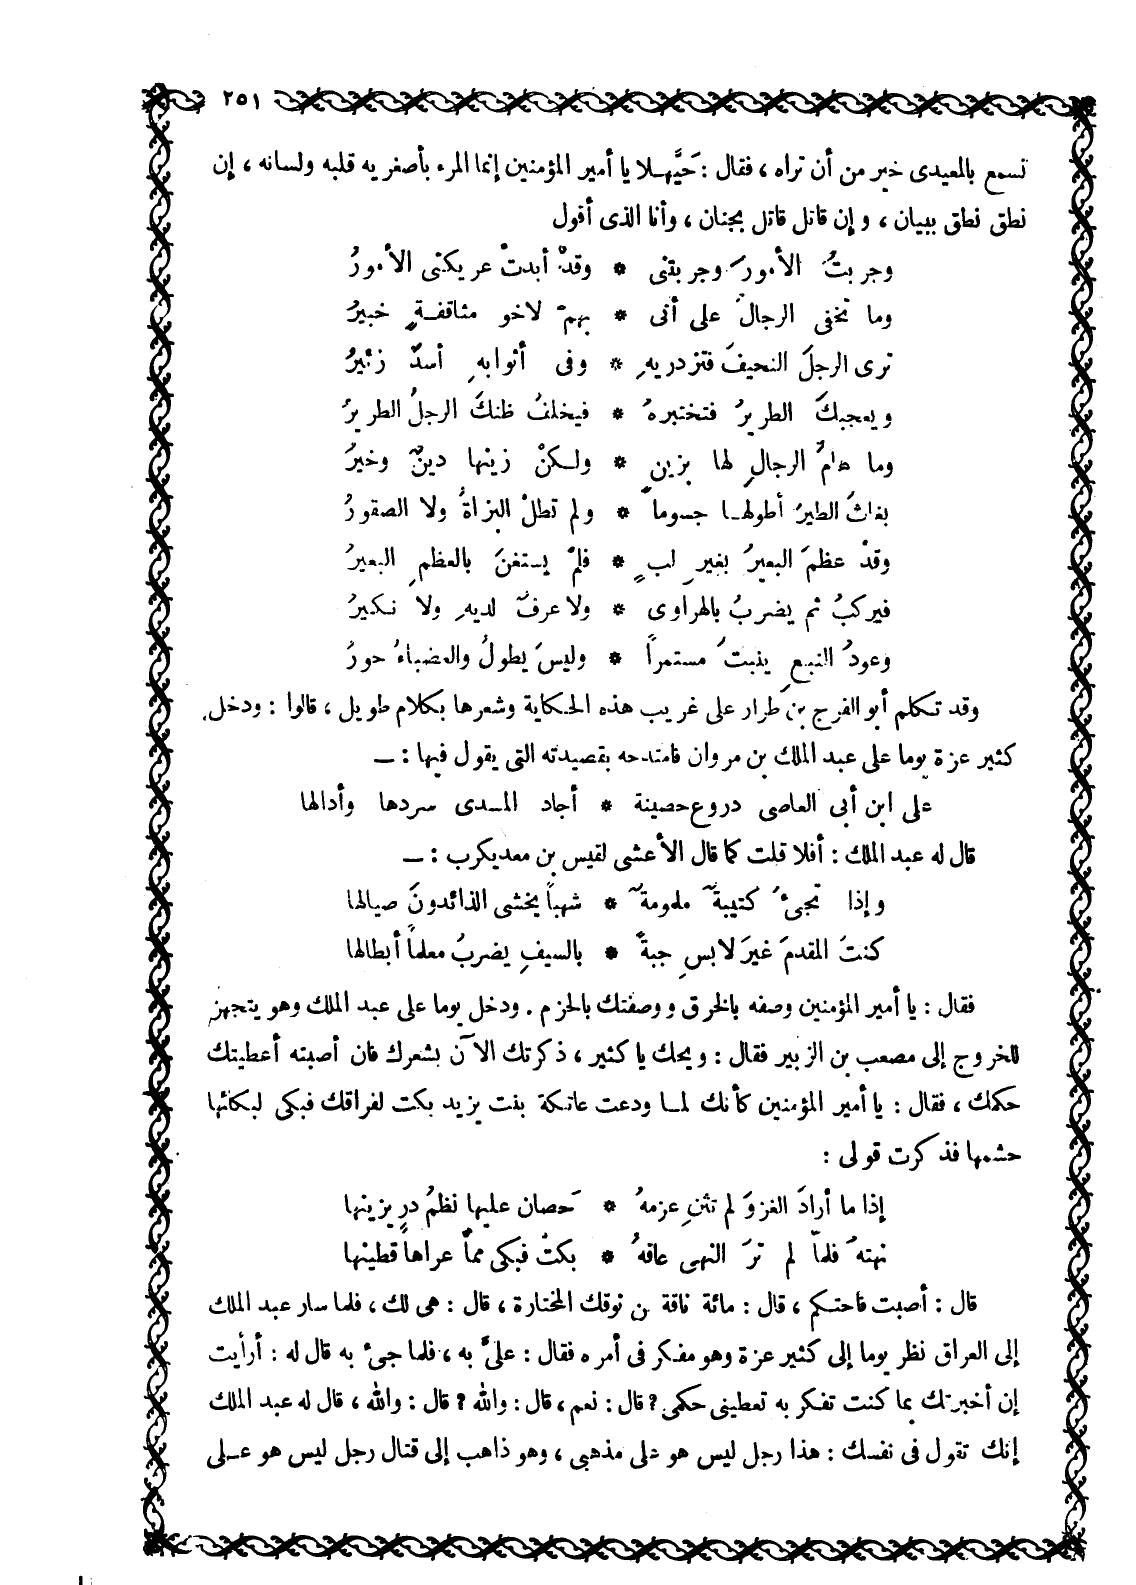 ٢٥١
تسمع بالمعيدى خير من أن تراه ، فقال : حَيَّهـلا يا أمير المؤمنين إنما المرء بأصغريه قلبه ولسانه ، إن
نطق نطق ببيان ، و إن قاتل قاتل بجنان ، وأنا الذى أقول
وجربتُ الأمورَ وجربتنى * وقدْ أبدتْ عريكتى الأمورُ
وما تخفى الرجالُ على أنى * بهمْ لاخو مثاقفـةٍ خبيرُ
ترى الرجلَ النحيفَ فتزدريهِ * وفى أثوابهِ أسدٌ زئيرُ
ويعجبكَ الطريرُ فتختبرهُ * فيخلفُ ظنكَ الرجلُ الطريرُ
وما هامُ الرجالِ لها بزينٍ * ولـكنْ زينها دينٌ وخيرُ
بغاثَ الطيرُ أطولهـا جسوماً * ولم تطلْ البزاةُ ولا الصقورُ
وقدْ عظمَ البعيرُ بغيرِ لبٍ * فلمْ يستغنَ بالعظمِ البعيرُ
فيركبُ ثم يضربُ بالهراوى * ولا عرفٌ لديهِ ولا نـكيرُ
وعودُ النبعِ ينبتُ مستمراً * وليسَ يطولُ والعضباءُ حورُ
وقد تـكلم أبو الفرج بن طرار على غريب هذه الحـكاية وشعرها بكلام طويل ، قالوا : ودخل
كثير عزة يوما على عبد الملك بن مروان فامتدحه بقصيدته التى يقول فيها : ــ
على ابن أبى العاصى دروع حصينة * أجاد المسدى سردها وأدالها
قال له عبد الملك : أفلا قلت كما قال الأعشى لقيس بن معديكرب : ــ
وإذا تجئُ كتيبةٌ ملمومةٌ * شهباً يخشى الذائدونَ صيالها
كنتَ المقدمَ غيرَ لابسِ جبةً * بالسيفِ يضربُ معلماً أبطالها
فقال : يا أمير المؤمنين وصفه بالخرق ووصفتك بالحزم . ودخل يوما على عبد الملك وهو يتجهز
للخروج إلى مصعب بن الزبير فقال : ويحك يا كثير ، ذكرتك الآن بشعرك فان أصبته أعطيتك
حكمك ، فقال : يا أمير المؤمنين كأنك لمـا ودعت عاتكة بنت يزيد بكت لفراقك فبكى لبكائها
حشمها فذكرت قولى :
إذا ما أرادَ الغزوَ لم تثنِ عزمهُ * حَصان عليها نظمُ درٍ يزينها
نهتهُ فلماّ لم ترَ النهى عاقهُ * بكتْ فبكى مماّ عراها قطينها
قال : أصبت فاحتـكم ، قال : مائة ناقة من نوقك المختارة ، قال : هى لك ، فلما سار عبد الملك
إلى العراق نظر يوما إلى كثير عزة وهو مفكر فى أمره فقال : علىَّ به ، فلما جئ به قال له : أرأيت
إن أخبرتك بما كنت تفكر به تعطينى حكمى ? قال : نعم ، قال : والله ? قال : والله ، قال له عبد الملك
إنك تقول فى نفسك : هذا رجل ليس هو على مذهبى ، وهو ذاهب إلى قتال رجل ليس هو عـلى